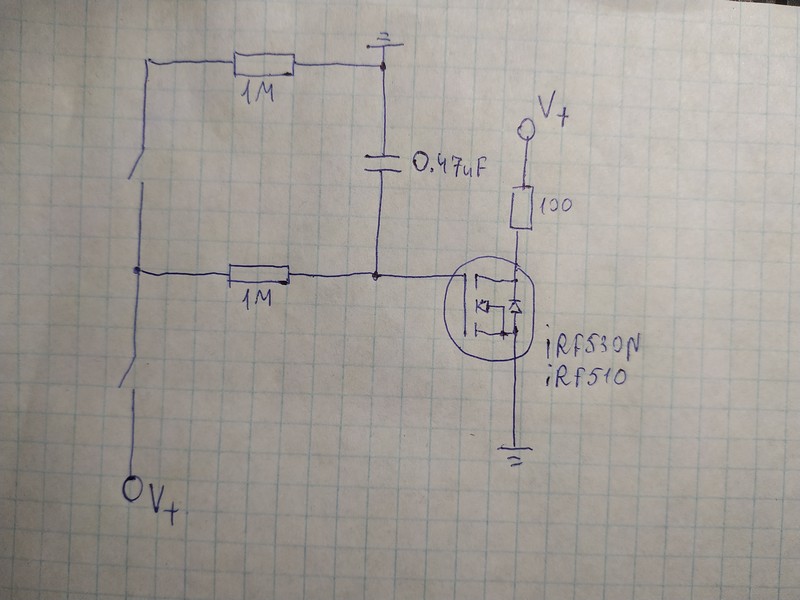 1M
V+
0.47uF
100
1M
iRF530N
iRF510
V+